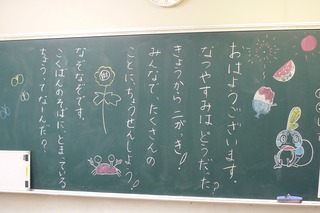 おはようございます。
なつやすみはどうだった?
きょうから二がっき!
みんなで、たくさんの
ことに、ちょうせんしよう!
なぞなぞです。
こくばんのそばに、とまっている
ちょうってなんだ?